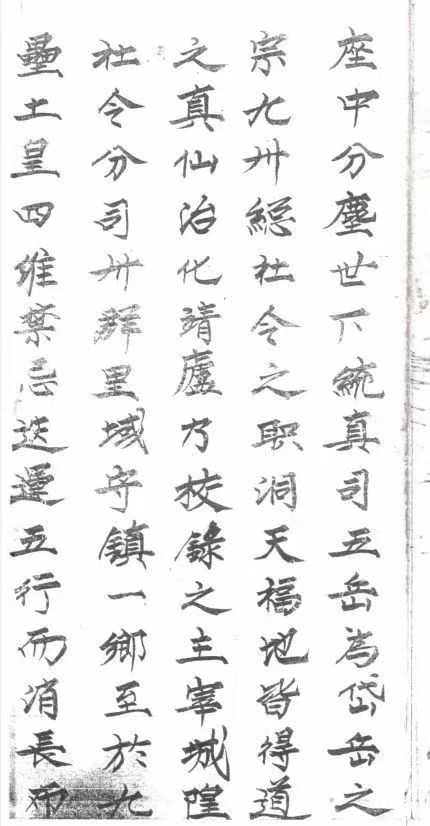 座中分塵世下統真司五岳為岱岳之
宗九州総社令之耺洞天福地皆得道
之真仙治化靖廬乃校錄之主宰城隍
社令分司州群里域守鎮一鄉至於九
壘土皇四維禁忌迭運五行而消長